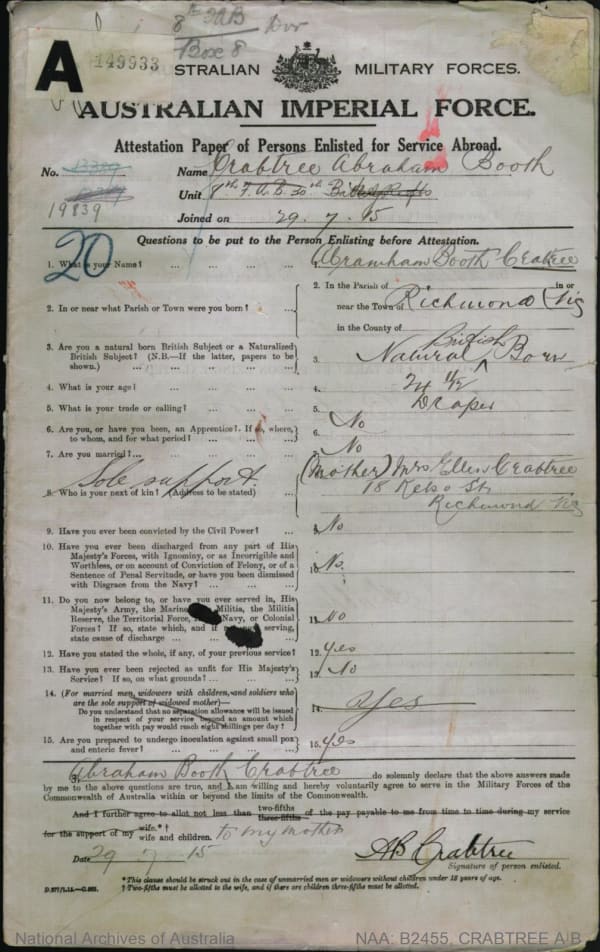 8th FAB Dvr
Box 8
A 149933
STRALIAN MILITARY FORCES.
AUSTRALIAN IMPERIAL FORCE.
Attestation Paper of Persons Enlisted for Service Abroad.
No. Name Crabtree Abraham Booth
19839 Unit 8th F.A.B. 30th
Joined on 29.7.15
20
Questions to be put to the Person Enlisting before Attestation.
1. What is your Name? ... ... ... ... 1. Abramham Booth Crabtree
2. In or near what Parish or Town were you born? ... 2. In the Parish of in or
near the Town of Richmond Vic
in the County of
3. Are you a natural born British Subject or a Naturalized
British Subject? (N.B.—If the latter, papers to be
shown.) ... ... ... ... ... 3. Natural British Born
4. What is your age? ... ... ... ... 4. 24
5. What is your trade or calling? ... ... ... 5. Draper
6. Are you, or have you been, an Apprentice? If so, where,
to whom, and for what period? ... ... ... 6. No
7. Are you married? ... ... ... ... 7. No
Sole support.
8. Who is your next of kin? (Address to be stated) ... 8. (Mother) Mrs Ellen Crabtree
18 Kelso St
Richmond Vic
9. Have you ever been convicted by the Civil Power? ... 9. No
10. Have you ever been discharged from any part of His
Majesty's Forces, with Ignominy, or as Incorrigible and
Worthless, or on account of Conviction of Felony, or of a
Sentence of Penal Servitude, or have you been dismissed
with Disgrace from the Navy? ... ... ... 10. No.
11. Do you now belong to, or have you ever served in, His
Majesty's Army, the Marine Militia, the Militia
Reserve, the Territorial Force, Navy, or Colonial
Forces? If so, state which, and if serving,
state cause of discharge ... ... ... 11. No
12. Have you stated the whole, if any, of your previous service? 12. Yes
13. Have you ever been rejected as unfit for His Majesty's
Service? If so, on what grounds? ... ... ... 13. No
14. (For married men, widowers with children, and soldiers who
are the sole support of widowed mother)—
Do you understand that no separation allowance will be issued
in respect of your service beyond an amount which
together with pay would reach eight shillings per day? 14. Yes
15. Are you prepared to undergo inoculation against small pox
and enteric fever? ... ... ... ... 15. Yes
I, Abraham Booth Crabtree do solemnly declare that the above answers made
by me to the above questions are true, and I am willing and hereby voluntarily agree to serve in the Military Forces of the
Commonwealth of Australia within or beyond the limits of the Commonwealth.
And I further agree to allot not less than two-fifths three-fifths of the pay payable to me from time to time during my service
for the support of my wife.*† wife and children. to my mother
Date 29.7.15 AB Crabtree
Signature of person enlisted.
* This clause should be struck out in the case of unmarried men or widowers without children under 18 years of age.
† Two-fifths must be allotted to the wife, and if there are children three-fifths must be allotted.
National Archives of Australia NAA: B2455, CRABTREE A B